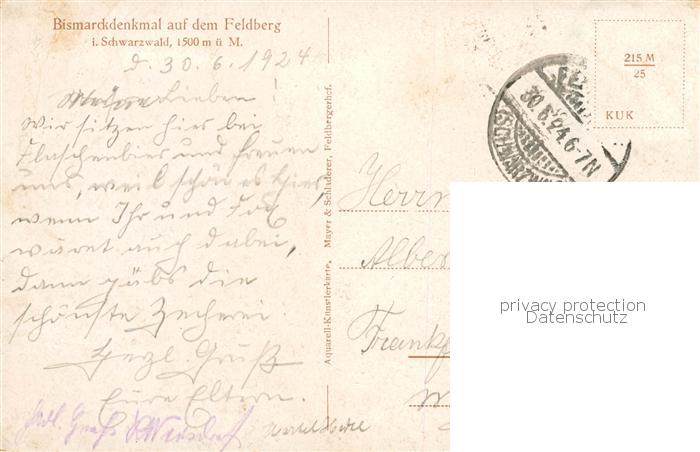 Bismarckdenkmal auf dem Feldberg
i. Schwarzwald, 1500 m ü M.
d. 30. 6. 1924
Lieben!
Wir sitzen hier bei
Flaschenbier und freuen
uns, weil schön es hier,
wenn Ihr und
wäret auch dabei,
dann gäbs die
schönste Zecherei.
Herzl. Gruß
Eure Eltern.
Herzl.
Aquarell-Künstlerkarte. Mayer & Schladerer, Feldbergerhof.
215 M
25
KUK
30.6.24.6-7N
Herrn
Albe
Frankf
privacy protection
Datenschutz